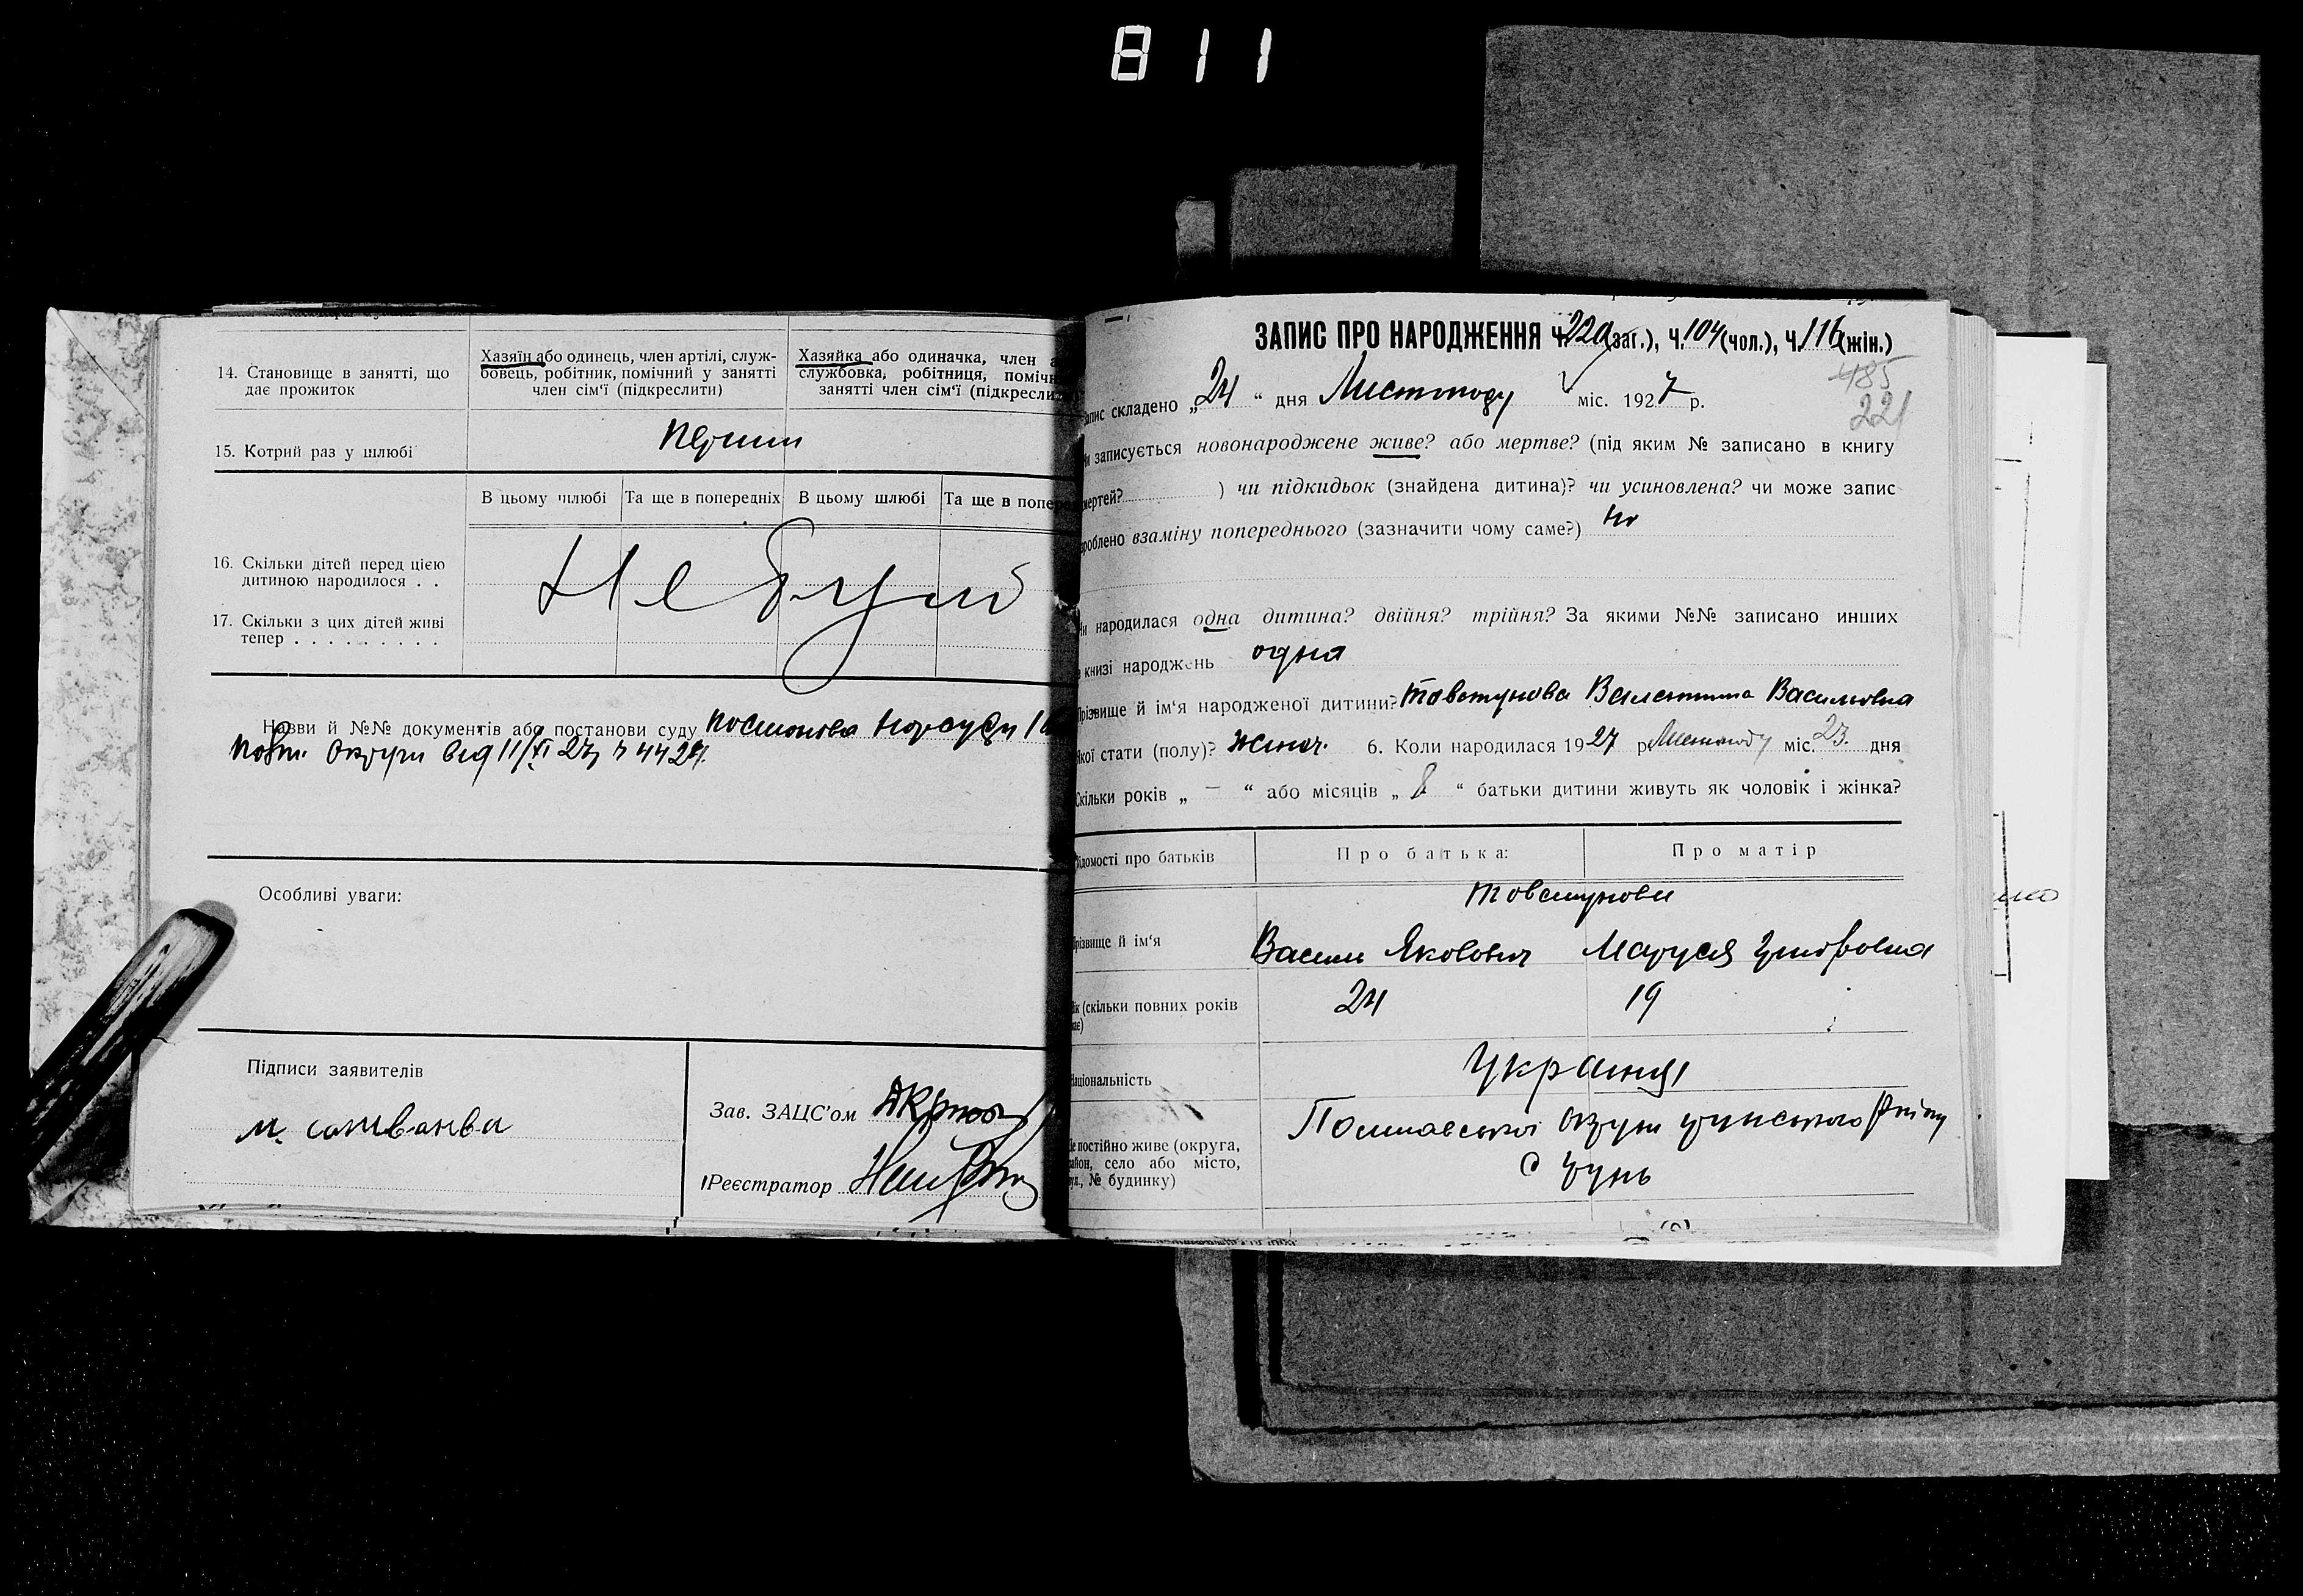 811
14. Становище в занятті, що дає прожиток
Хазяїн або одинець, член артілі, служ-
бовець, робітник, помічний у занятті
член сім'ї (підкреслити)
Хазяйка або одиначка, член а
службовка, робітниця, поміч
занятті член сім'ї (підкресли
15. Котрий раз у шлюбі
перший
В цьому шлюбі Та ще в попередніх В цьому шлюбі Та ще в попер
16. Скільки дітей перед цією
дитиною народилося . .
17. Скільки з цих дітей живі
тепер . . . . . . . . .
Не було
Назви й №№ документів або постанови суду Постанова Нарсуду
Полт. Округи від 11/XI 27
Особливі уваги:
Підписи заявителів
Зав. ЗАЦС'ом
Реєстратор
ЗАПИС ПРО НАРОДЖЕННЯ Ч. 220 (заг.), Ч. 104 (чол.), Ч. 116 (жін.)
485
221
апис складено „24“ дня Листопаду міс. 1927 р.
и записується новонароджене живе? або мертве? (під яким № записано в книгу
мертей? ) чи підкидьок (знайдена дитина)? чи усиновлена? чи може запис
роблено взаміну попереднього (зазначити чому саме?) ні
и народилася одна дитина? двійня? трійня? За якими №№ записано инших
книзі народжень одна
різвище й ім'я народженої дитини? Товстунова Валентина Васильовна
кої стати (полу)? жіноч. 6. Коли народилася 1927 р. Листопаду міс. 23. дня
кільки років „ – “ або місяців „ 8 “ батьки дитини живуть як чоловік і жінка?
ідомості про батьків Про батька: Про матір
Товстунови
різвище й ім'я Василь Якович Маруся
ік (скільки повних років
ає)
24 19
аціональність
Україн
е постійно живе (округа,
айон, село або місто,
ул., № будинку)
Полтавської округи
с